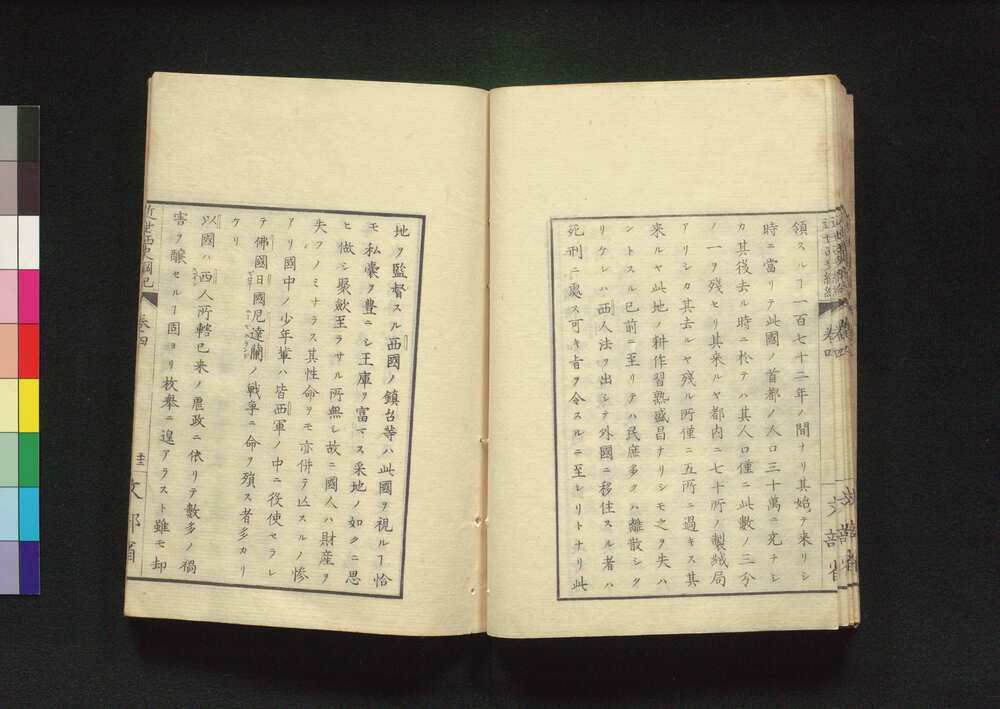 領スルヿ一百七十二年ノ間ナリ其始テ來リシ
時ニ當リテ此國ノ首都ノ人口三十萬ニ充チシ
カ其後去ル時ニ於テハ其人口僅ニ此數ノ三分
ノ一ヲ殘セリ其來ルヤ都内ニ七十所ノ製絨局
アリシカ其去ルヤ殘ル所僅ニ五所ニ過キス其
來ルヤ此地ノ耕作習熟盛昌ナリシモ之ヲ失ハ
ントスル已前ニ至リテハ民庶多クハ離散シタ
リケレハ西人法ヲ出シテ外國ニ移住スル者ハ
死刑ニ處ス可キ旨ヲ令スルニ至レリトナリ此
地ヲ監督スル西國ノ鎮台等ハ此國ヲ視ルヿ恰
モ私嚢ヲ豊ニシ王庫ヲ富マス采地ノ如クニ思
ヒ做シ聚歛至ラサル所無シ故ニ國人ハ財産ヲ
失フノミナラス其性命ヲモ亦併テ亡スルノ惨
アリ國中ノ少年輩ハ皆西軍ノ中ニ役使セラレ
テ佛國日國尼達蘭ノ戰爭ニ命ヲ殞ス者多カリ
ケリ
以國ハ西人所轄已来ノ虐政ニ依リテ數多ノ禍
害ヲ醸セルヿ固ヨリ枚擧ニ遑アラスト雖モ却
近世西史綱紀 卷四 文部省